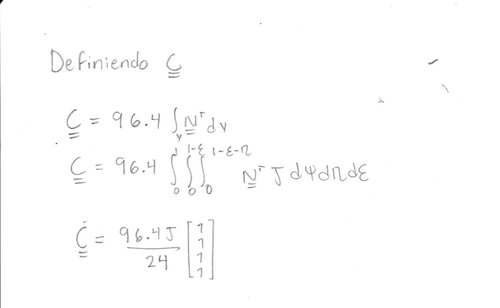 Definiendo C
C = 96.4 ∫_V N^T dV
C = 96.4 ∫_0^1 ∫_0^{1-ε} ∫_0^{1-ε-η} N^T J dψ dη dε
C = 96.4 J / 24 [1 1 1 1]